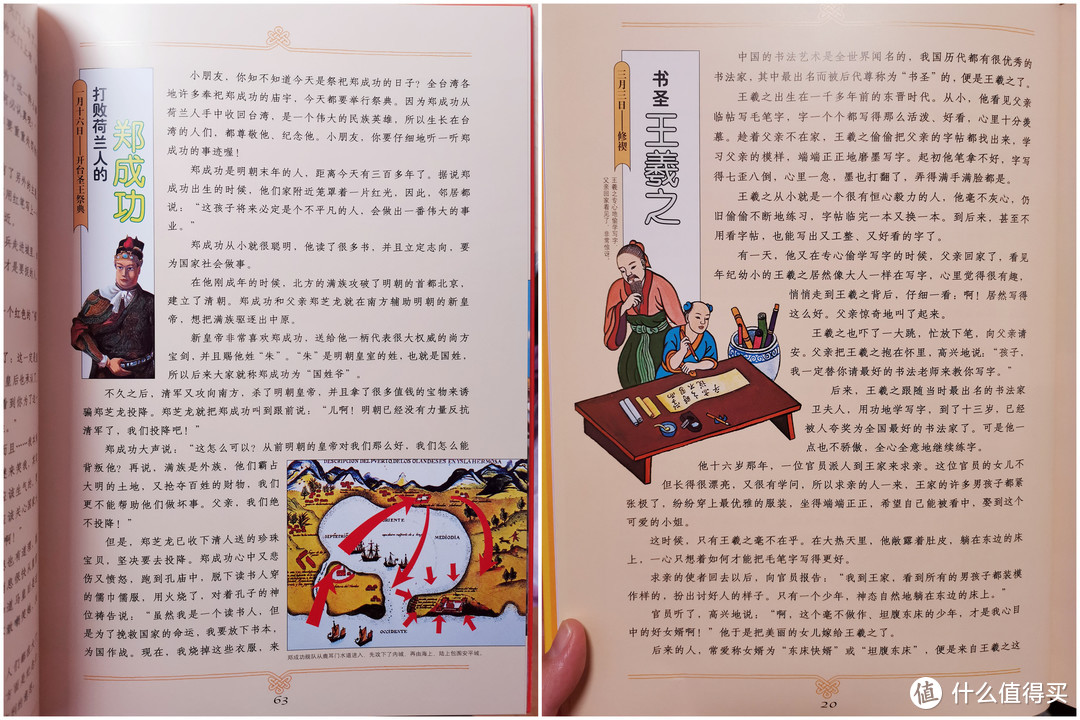 一月十六日——开台圣王祭典
打败荷兰人的
郑成功
小朋友，你知不知道今天是祭祀郑成功的日子？全台湾各
地许多奉祀郑成功的庙宇，今天都要举行祭典。因为郑成功从
荷兰人手中收回台湾，是一个伟大的民族英雄，所以生长在台
湾的人们，都尊敬他、纪念他。小朋友，你要仔细地听一听郑
成功的事迹喔！
郑成功是明朝末年的人，距离今天有三百多年了。据说郑
成功出生的时候，他们家附近笼罩着一片红光，因此，邻居都
说：“这孩子将来必定是个不平凡的人，会做出一番伟大的事
业。”
郑成功从小就很聪明，他读了很多书，并且立定志向，要
为国家社会做事。
在他刚成年的时候，北方的满族攻破了明朝的首都北京，
建立了清朝。郑成功和父亲郑芝龙就在南方辅助明朝的新皇
帝，想把满族驱逐出中原。
新皇帝非常喜欢郑成功，送给他一柄代表很大权威的尚方
宝剑，并且赐他姓“朱”。“朱”是明朝皇室的姓，也就是国姓，
所以后来大家就称郑成功为“国姓爷”。
不久之后，清军又攻向南方，杀了明朝皇帝，并且拿了很多值钱的宝物来诱
骗郑芝龙投降。郑芝龙就把郑成功叫到跟前说：“儿啊！明朝已经没有力量反抗
清军了，我们投降吧！”
郑成功大声说：“这怎么可以？从前明朝的皇帝对我们那么好，我们怎么能
背叛他？再说，满族是外族，他们霸占
大明的土地，又抢夺百姓的财物，我们
更不能帮助他们做坏事。父亲，我们绝
不投降！”
但是，郑芝龙已收下清人送的珍珠
宝贝，坚决要去投降。郑成功心中又悲
伤又愤怒，跑到孔庙中，脱下读书人穿
的儒巾儒服，用火烧了，对着孔子的神
位祷告说：“虽然我是一个读书人，但
是为了挽救国家的命运，我要放下书本，
为国作战。现在，我烧掉这些衣服，来
DESCRIPCION DEL PVERTO DE LOS OLANDESES EN YNLA HERMOSA
ORIENTE
SEPTETRIO
MEDIODIA
OCCIDENTE
郑成功舰队从鹿耳门水道进入，先攻下了赤城，再由海上、陆上包围安平城。
63
三月三日——修禊
书圣
王羲之
王羲之专心地偷学写字，
父亲回家看见了，非常惊讶。
中国的书法艺术是全世界闻名的，我国历代都有很优秀
的书法家，其中最出名而被后代尊称为“书圣”的，便是王羲之了。
王羲之出生在一千多年前的东晋时代。从小，他看见父亲
临帖写毛笔字，字一个个都写得那么活泼、好看，心里十分羡
慕。趁着父亲不在家，王羲之偷偷把父亲的字帖都找出来，学
习父亲的模样，端端正正地磨墨写字。起初他笔拿不好，字写
得七歪八倒，心里一急，墨也打翻了，弄得满手满脸都是。
王羲之从小就是一个很有恒心毅力的人，他毫不灰心，仍
旧偷偷不断地练习，字帖临完一本又换一本。到后来，甚至不
用看字帖，也能写出又工整、又好看的字了。
有一天，他又在专心偷学写字的时候，父亲回家了，看见
年纪幼小的王羲之居然像大人一样在写字，心里觉得很有趣，
悄悄走到王羲之背后，仔细一看：啊！居然写得
这么好。父亲惊奇地叫了起来。
王羲之也吓了一大跳，忙放下笔，向父亲请
安。父亲把王羲之抱在怀里，高兴地说：“孩子，
我一定替你请最好的书法老师来教你写字。”
后来，王羲之跟随当时最出名的书法家
卫夫人，用功地学习写字，到了十三岁，已经
被人夸奖为全国最好的书法家了。可是他一
点也不骄傲，全心全意地继续练字。
他十六岁那年，一位官员派人到王家来求亲。这位官员的女儿不
但长得很漂亮，又很有学问，所以求亲的人一来，王家的许多男孩子都紧
张极了，纷纷穿上最优雅的服装，坐得端端正正，希望自己能被看中，娶到这个
可爱的小姐。
这时候，只有王羲之毫不在乎。在大热天里，他敞露着肚皮，躺在东边的床
上，一心只想着如何才能把毛笔字写得更好。
求亲的使者回去以后，向官员报告：“我到王家，看到所有的男孩子都装模
作样的，扮出讨好人的样子。只有一个少年，神态自然地躺在东边的床上。”
官员听了，高兴地说：“啊，这个毫不做作、坦腹东床的少年，才是我心目
中的好女婿啊！”他于是把美丽的女儿嫁给王羲之了。
后来的人，常爱称女婿为“东床快婿”或“坦腹东床”，便是来自王羲之这
20
值 什么值得买